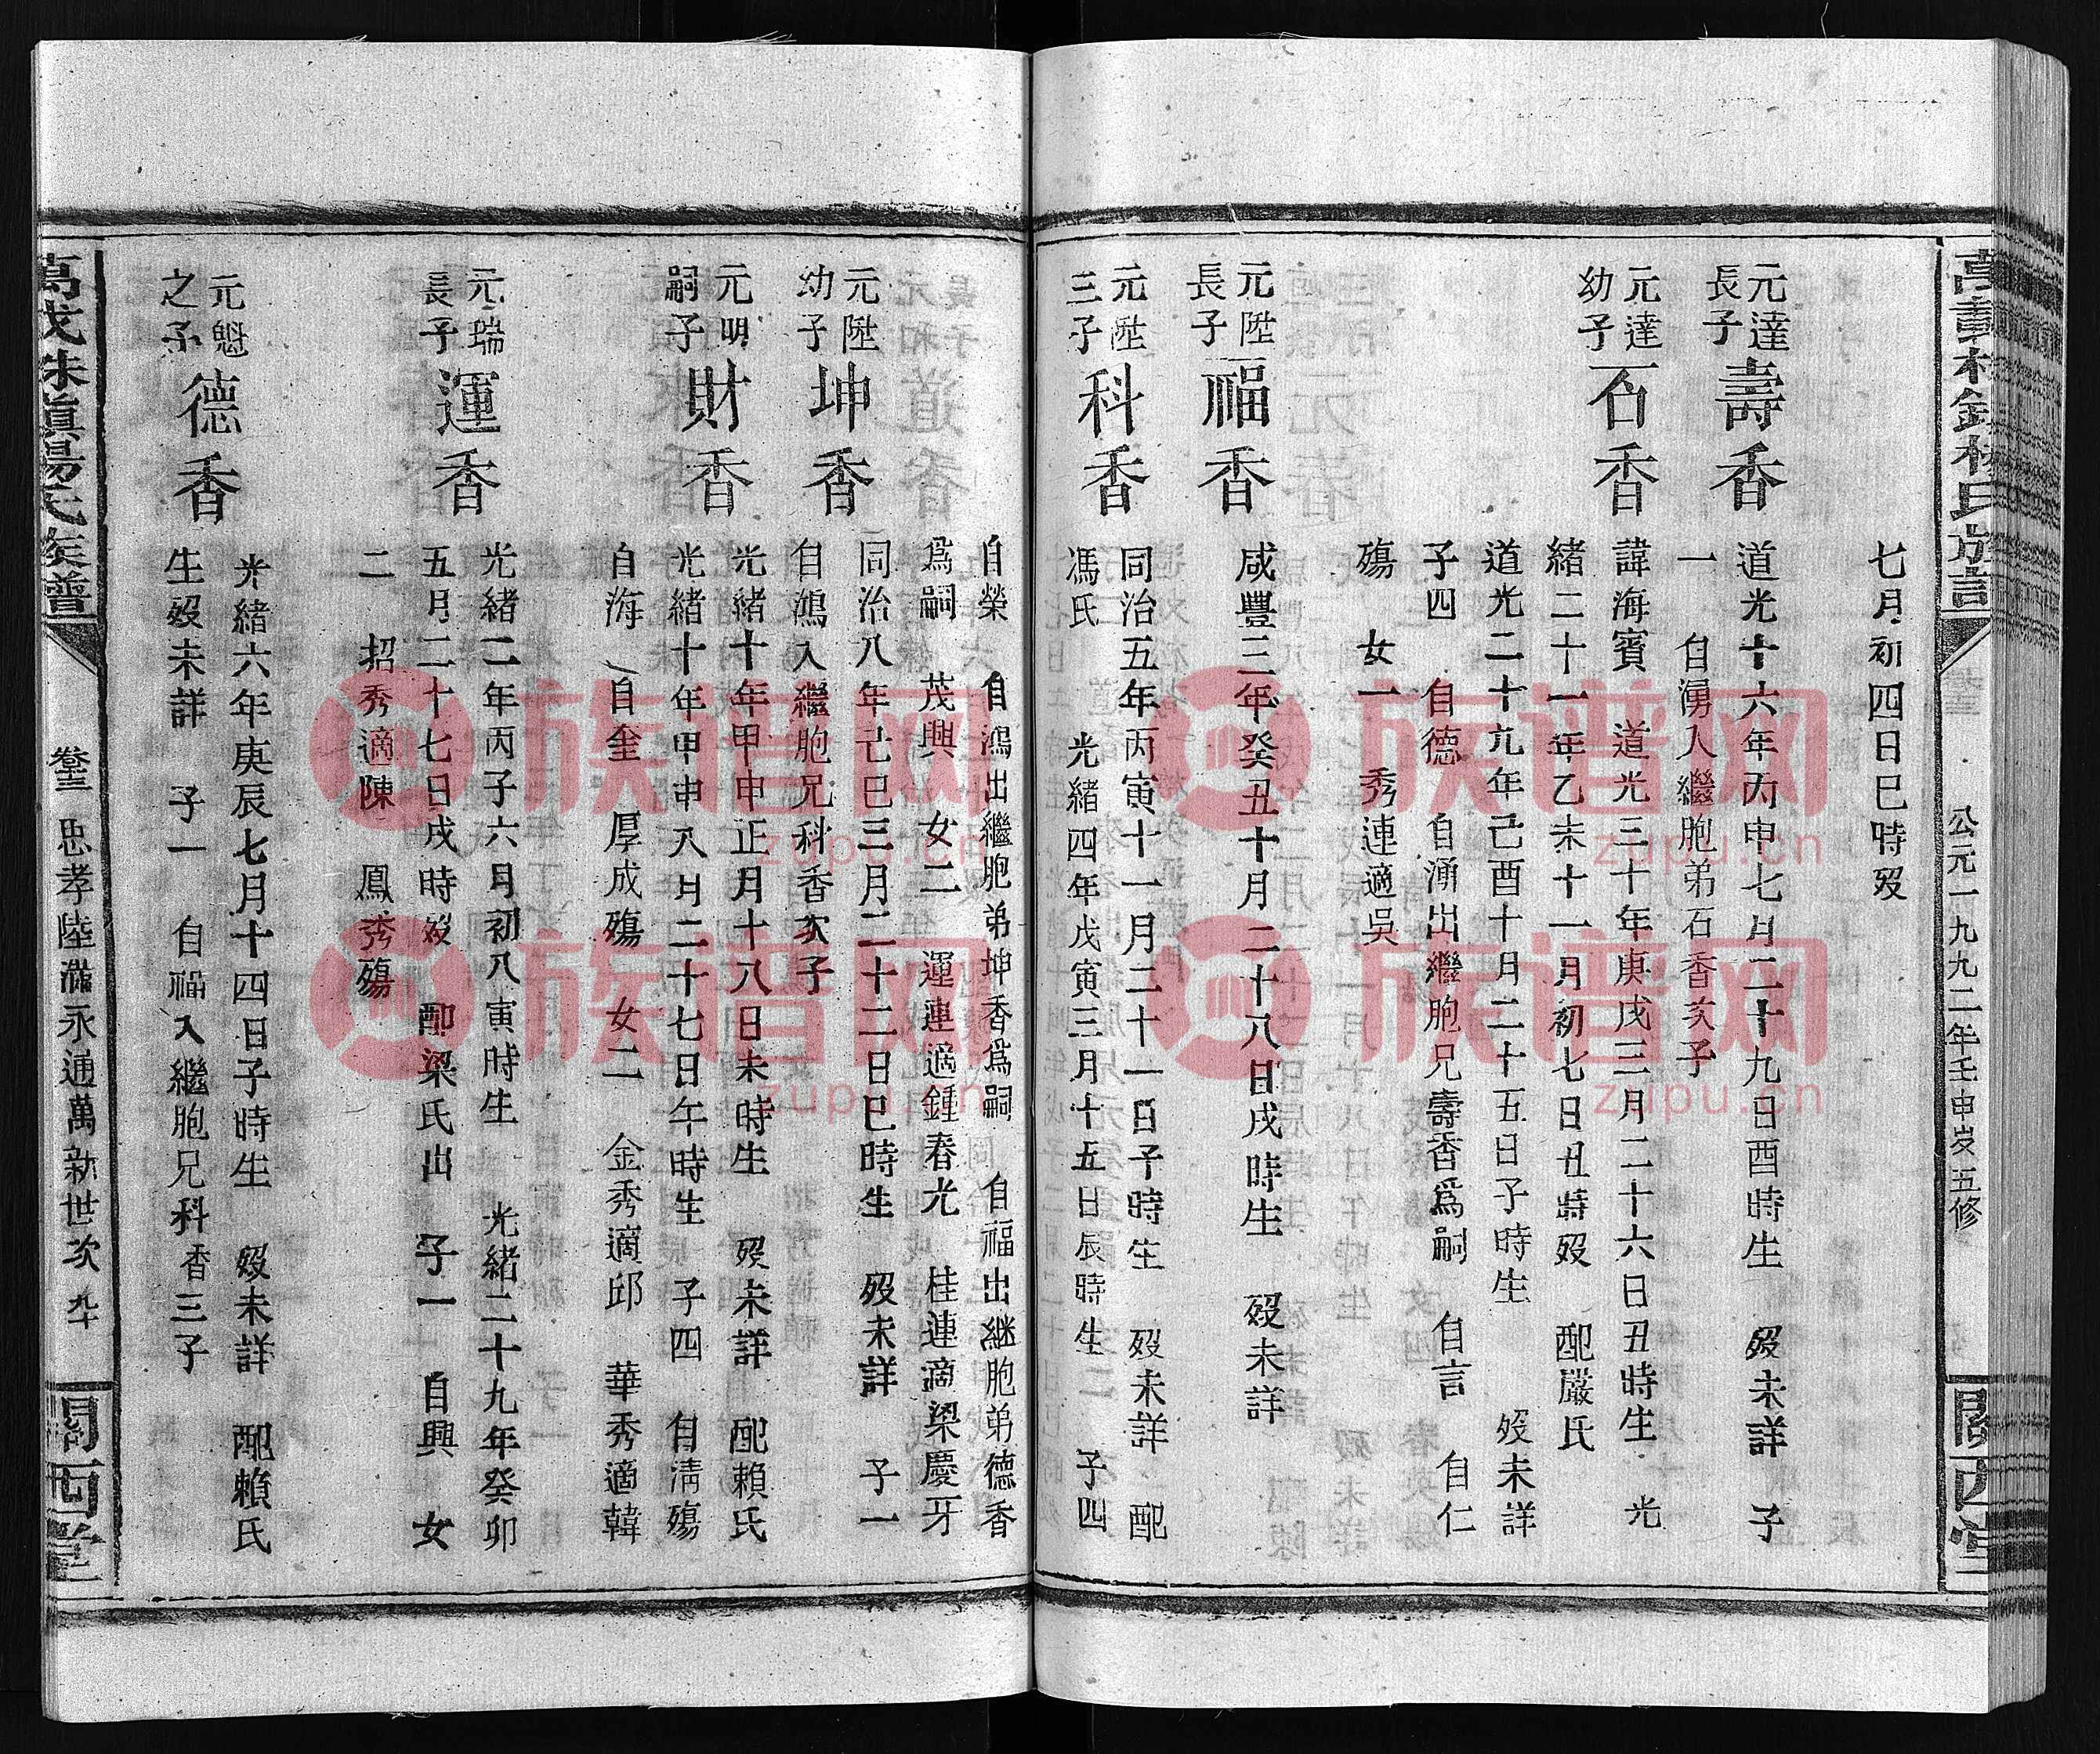 公元一九九二年壬申岁五修
七月初四日巳時歿
元達長子
壽香
道光十六年丙申七月二十九日酉時生 歿未詳 子
一 自湧入繼胞弟石香次子
元達幼子
石香
諱海賓 道光三十年庚戌三月二十六日丑時生 光
緒二十一年乙未十一月初七日丑時歿 配嚴氏
道光二十九年己酉十月二十五日子時生 歿未詳
子四 自德 自湧出繼胞兄壽香爲嗣 自言 自仁
殤 女一 秀連適吳
元陞長子
福香
咸豐三年癸丑十月二十八日戌時生 歿未詳
元陞三子
科香
同治五年丙寅十一月二十一日子時生 歿未詳 配
馮氏 光緒四年戊寅三月十五日辰時生 子四
自榮 自鴻出繼胞弟坤香爲嗣 自福出继胞弟德香
爲嗣 茂興 女二 運連適鍾春光 桂連適梁慶牙
元陞幼子
坤香
同治八年己巳三月二十二日巳時生 歿未詳 子一
自鴻入繼胞兄科香次子
元明嗣子
財香
光緒十年甲申正月十八日未時生 歿未詳 配賴氏
光緒十年甲申八月二十七日午時生 子四 自清殤
自海 自奎 厚成殤 女二 金秀適邱 華秀適韓
元瑞長子
運香
光緒二年丙子六月初八寅時生 光緒二十九年癸卯
五月二十七日戌時歿 配梁氏出 子一 自興 女
二 招秀適陳 鳳秀殤
元魁之子
德香
光緒六年庚辰七月十四日子時生 歿未詳 配賴氏
生歿未詳 子一 自福入繼胞兄科香三子
楊氏族譜
卷三 忠孝陸 永通萬新世次 九十
關西堂
族谱网
zupu.cn
族谱网
zupu.cn
族谱网
zupu.cn
族谱网
zupu.cn